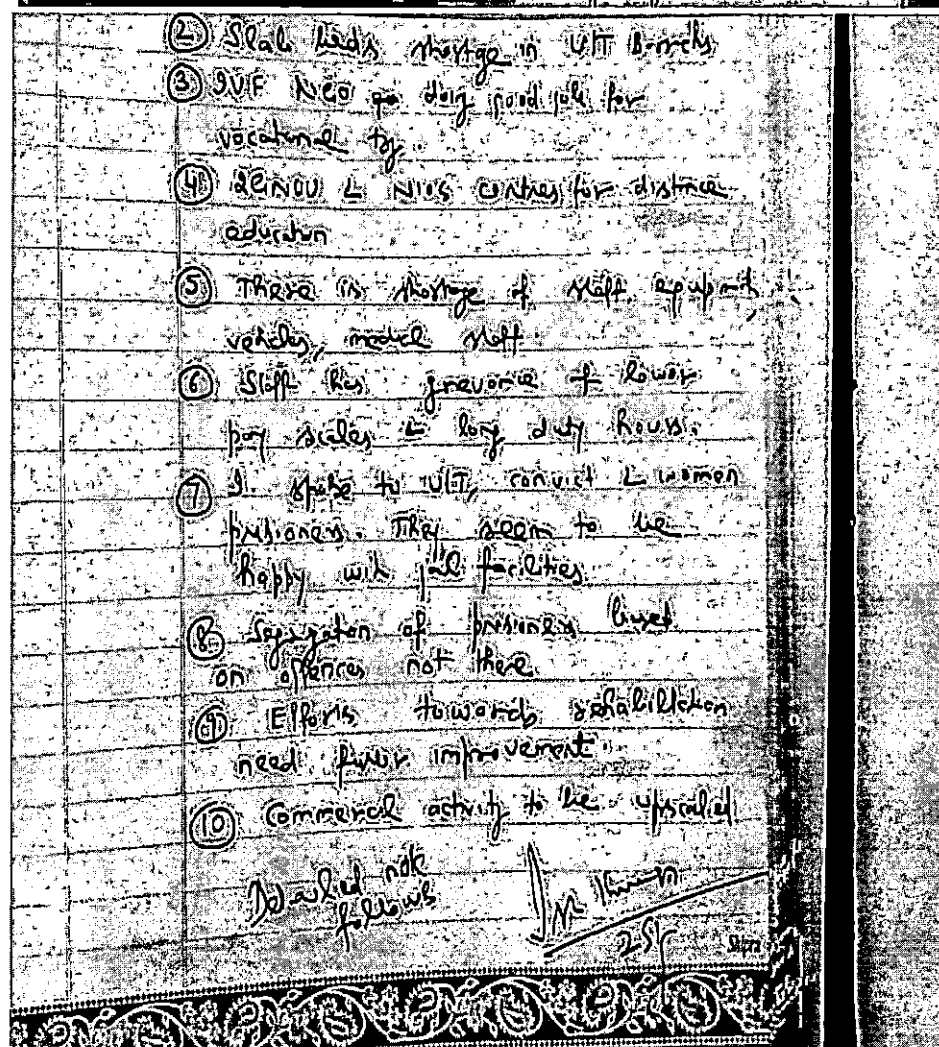 ② Slab beds shortage in U/T B-rracks
③ IVF NGO is doing good job for
vocational trg.
④ IGNOU & NIOS centres for distance
education
⑤ There is shortage of staff equipments,
vehicles, medical staff
⑥ Staff has grievance of lower
pay scales & long duty hours.
⑦ I spoke to U/T, convict & women
prisioners. They seem to be
happy with jail facilities
⑧ Segregation of prisioners based
on offences not there
⑨ Efforts towards rehabilitation
need furter improvement
⑩ Commercial activity to be upscaled
Detailed note
follows